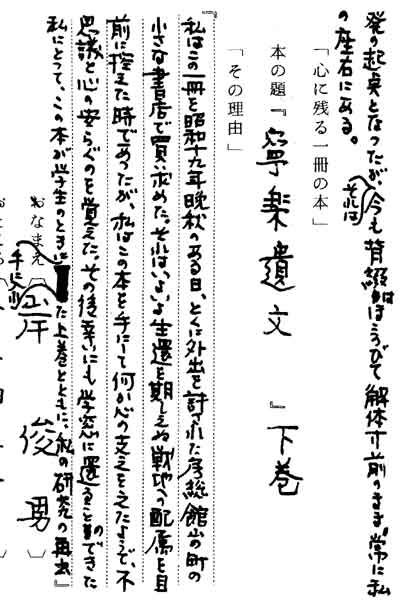 発の起点となったが、それは今も背綴がほころびて解体寸前のまま、常に私
の座右にある。
「心に残る一冊の本」
本の題『寧楽遺文 』下巻
「その理由」
『私はこの一冊を昭和十九年晩秋のある日、とくに外出を許された房総館山の町の
小さな書店で買い求めた。それはいよいよ生還を期しえぬ戦地への配属を目
前に控えた時であったが、私はこの本を手にして何か心の支えをえたようで、不
思議と心の安らぐのを覚えた。その後幸いにも学窓に還ることのできた
私にとって、この本が学生のときに手に入れた上巻とともに、私の研究の再出』
おなまえ〔岸 俊 男〕